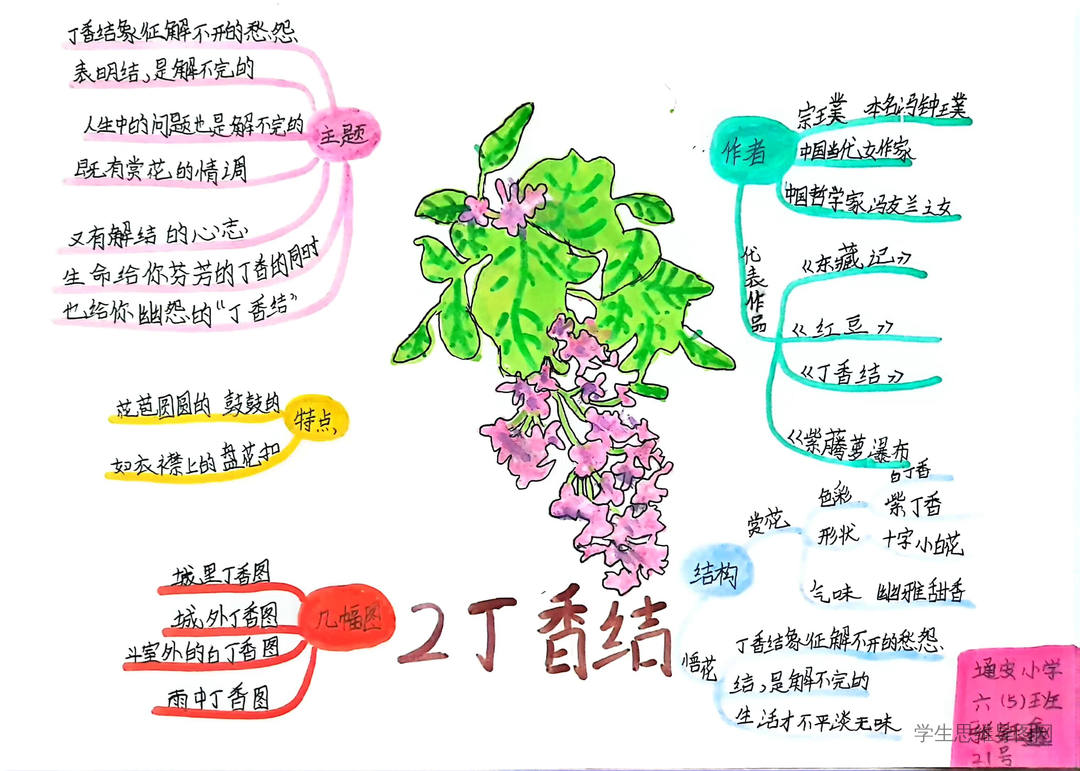 丁香结象征解不开的愁怨
表明结,是解不完的
人生中的问题也是解不完的
既有赏花的情调
又有解结的心志
生命给你芬芳的丁香的同时
也给你幽怨的“丁香结”
主题
花苞圆圆的 鼓鼓的
如衣襟上的盘花扣
特点
城里丁香图
城外丁香图
斗室外的白丁香图
雨中丁香图
几幅图
2丁香结
作者
宗王璞 本名冯钟王璞
中国当代女作家
中国哲学家冯友兰之女
代表作品
《东藏记》
《红豆》
《丁香结》
《紫藤萝瀑布
结构
赏花
色彩
白丁香
紫丁香
形状
十字小白花
气味 幽雅甜香
悟花
丁香结象征解不开的愁怨
结,是解不完的
生活才不平淡无味
小学
六(5)班
21号
学生思维导图网